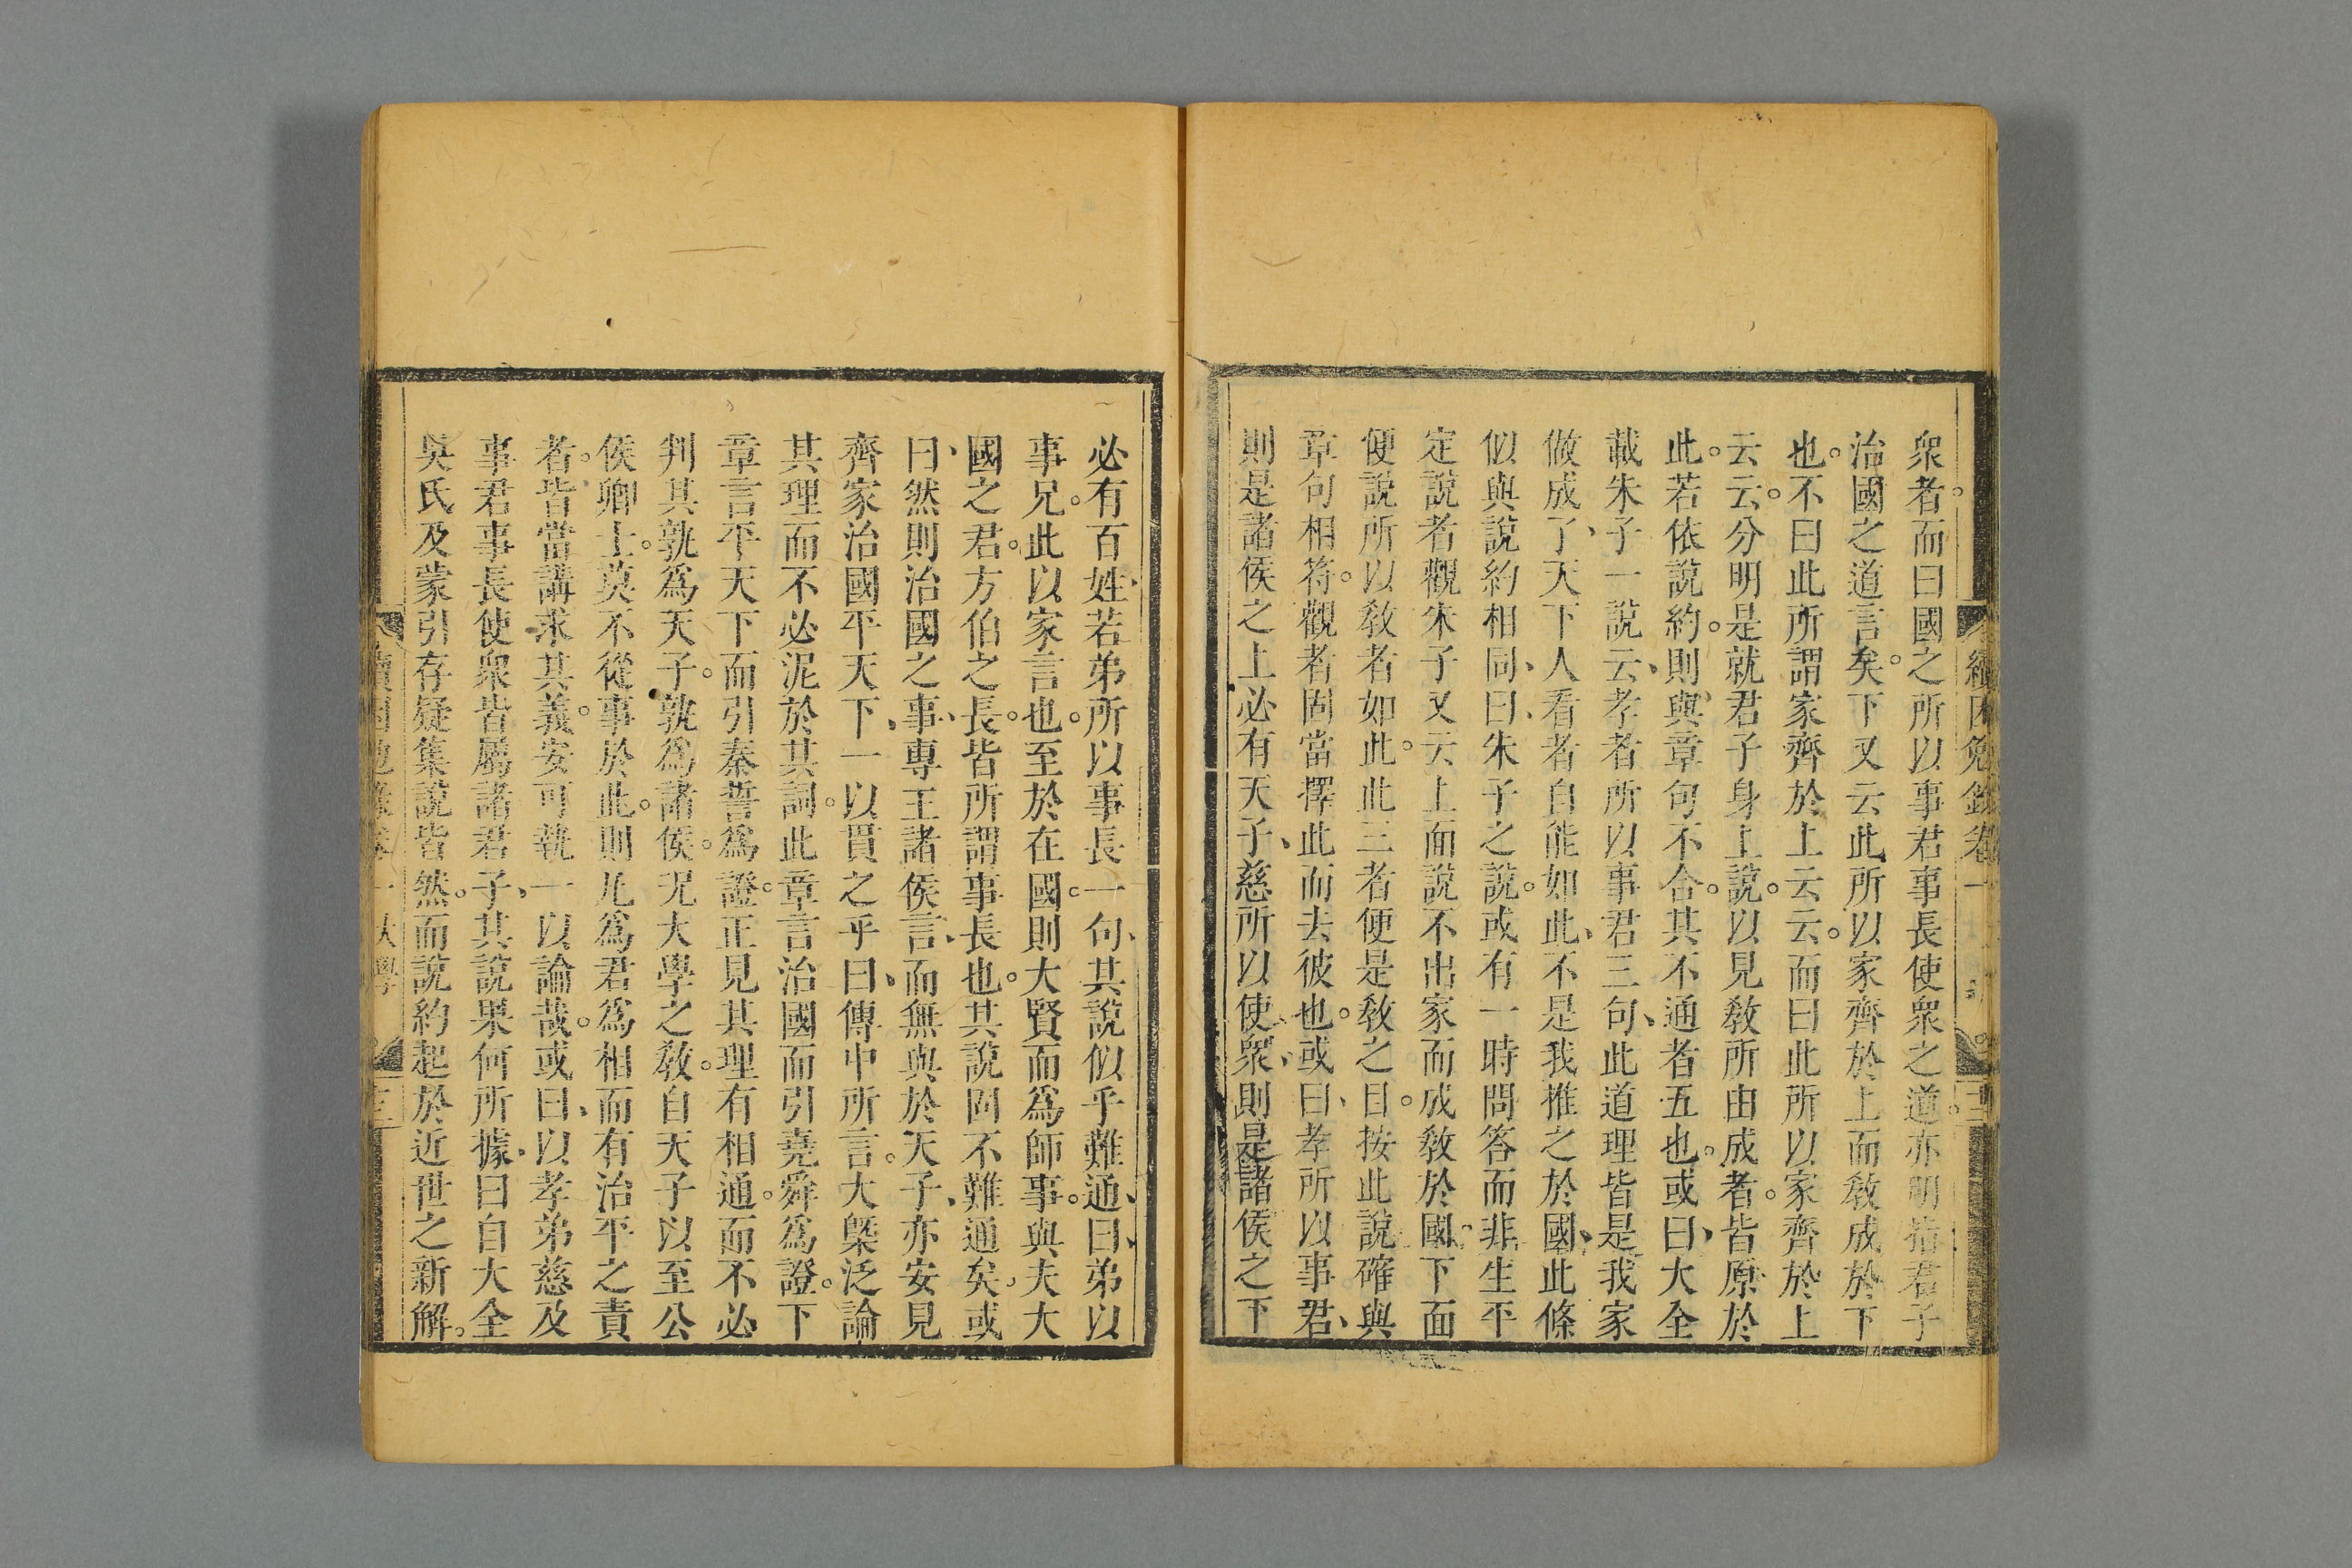 續困勉錄卷一
衆者。而曰國之所以事君事長使衆之道。亦明指君子
治國之道言矣。下又云此所以家齊於上而敎成於下
也。不曰此所謂家齊於上云云。而曰此所以家齊於上
云云。分明是就君子身上說。以見敎所由成者。皆原於
此。若依說約。則與章句不合。其不通者五也。或曰、大全
載朱子一說云、孝者所以事君三句、此道理皆是我家
做成了、天下人看者自能如此、不是我推之於國、此條
似與說約相同、曰、朱子之說。或有一時問答而非生平
定說者觀朱子又云上面說不出家而成敎於國。下面
便說所以敎者如此。此三者便是敎之目。按此說確與
章句相符。觀者固當擇此而去彼也。或曰、孝所以事君、
則是諸侯之上必有天子、慈所以使衆、則是諸侯之下
必有百姓、若弟所以事長一句、其說似乎難通、曰、弟以
事兄。此以家言也。至於在國。則大賢而爲師事。與夫大
國之君。方伯之長。皆所謂事長也。其說固不難通矣、或
曰、然則治國之事、專王諸侯言、而無與於天子、亦安見
齊家治國平天下、一以貫之乎、曰、傳中所言。大槩泛論
其理而不必泥於其詞。此章言治國而引堯舜爲證。下
章言平天下而引秦誓爲證。正見其理有相通。而不必
判其孰爲天子。孰爲諸侯。况大學之敎。自天子以至公
侯卿士。莫不從事於此。則凡爲君爲相而有治平之責
者。皆當講求其義。安可執一以論哉。或曰、以孝弟慈及
事君事長使衆皆屬諸君子、其說果何所據、曰自大全
吳氏及蒙引存疑集說皆然。而說約起於近世之新解。
大學